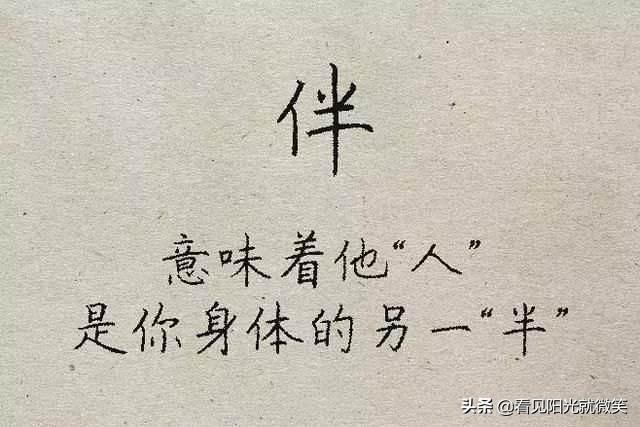 伴
意味着他“人”
是你身体的另一“半”
头条 @看见阳光就微笑